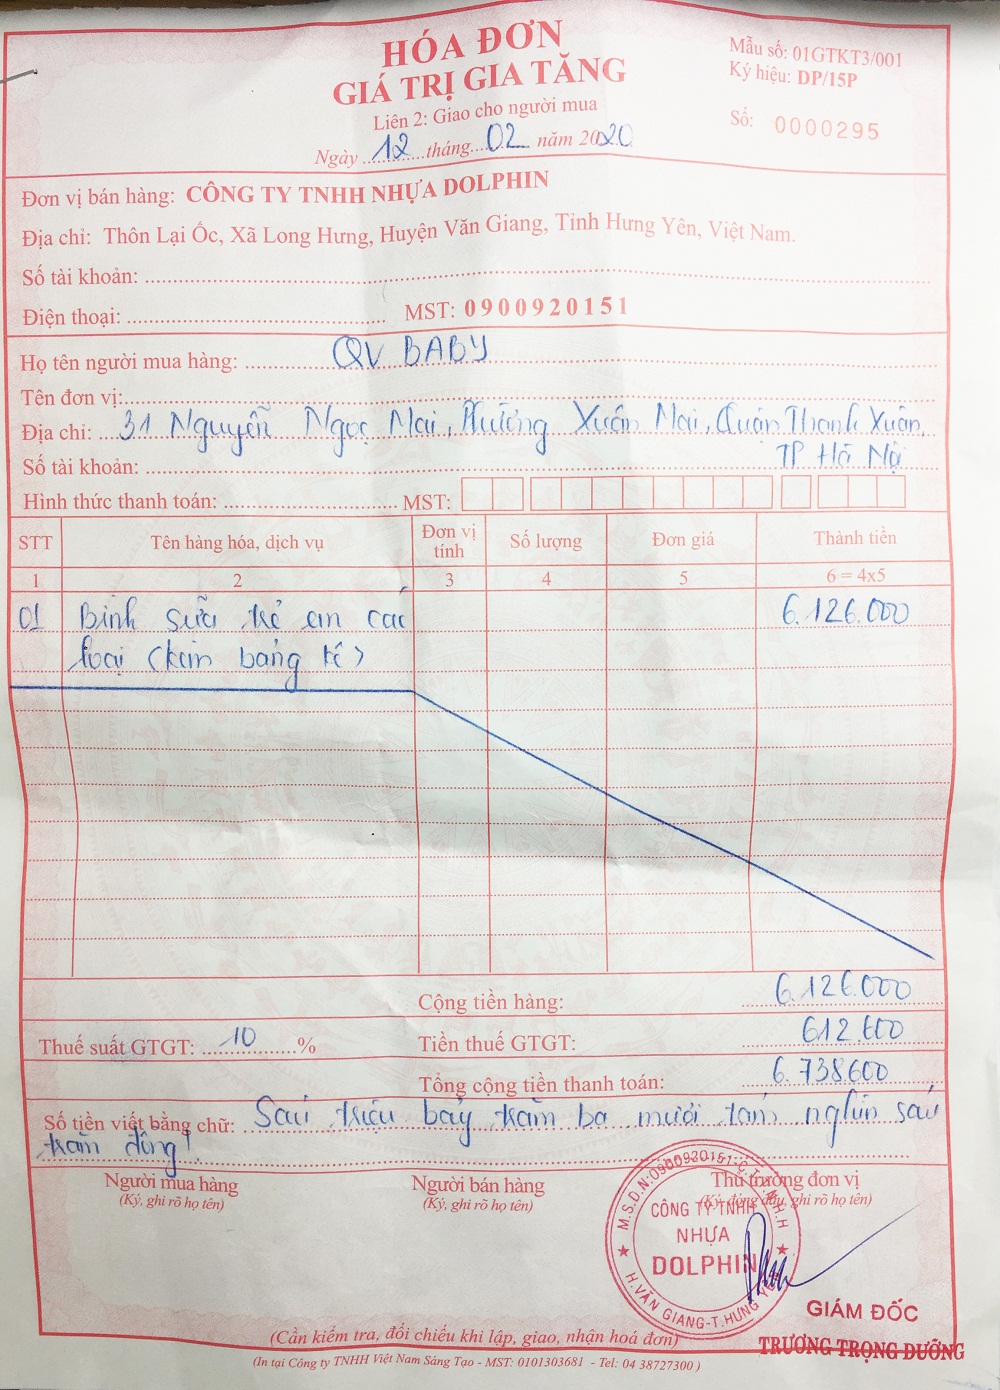 HÓA ĐƠN
GIÁ TRỊ GIA TĂNG
Liên 2: Giao cho người mua
Ngày 12 tháng 02 năm 2020
Mẫu số: 01GTKT3/001
Ký hiệu: DP/15P
Số: 0000295
Đơn vị bán hàng: CÔNG TY TNHH NHỰA DOLPHIN
Địa chỉ: Thôn Lại Ốc, Xã Long Hưng, Huyện Văn Giang, Tỉnh Hưng Yên, Việt Nam.
Số tài khoản:
Điện thoại: MST: 0900920151
Họ tên người mua hàng: QV BABY
Tên đơn vị:
Địa chỉ: 31 Nguyễn Ngọc Mai, Phường Xuân Mai, Quận Thanh Xuân,
TP Hà Nộ
Số tài khoản:
Hình thức thanh toán: MST:
STT Tên hàng hóa, dịch vụ Đơn vị tính Số lượng Đơn giá Thành tiền
1 2 3 4 5 6 = 4x5
01 Bình sữa trẻ em các 6.126.000
loại (kèm bảng kê)
Cộng tiền hàng: 6.126.000
Thuế suất GTGT: 10 % Tiền thuế GTGT: 612.600
Tổng cộng tiền thanh toán: 6.738600
Số tiền viết bằng chữ: Sáu triệu bảy trăm ba mươi tám nghìn sáu
trăm đồng!
Người mua hàng Người bán hàng Thủ trưởng đơn vị
(Ký, ghi rõ họ tên) (Ký, ghi rõ họ tên) (Ký, đóng dấu, ghi rõ họ tên)
M.S.D.N:0900920151-C.T.T.N.H.H
CÔNG TY TNHH
NHỰA
DOLPHIN
H.VĂN GIANG-T.HƯNG YÊN
GIÁM ĐỐC
TRƯƠNG TRỌNG DƯỠNG
(Cần kiểm tra, đối chiếu khi lập, giao, nhận hoá đơn)
(In tại Công ty TNHH Việt Nam Sáng Tạo - MST: 0101303681 - Tel: 04 38727300 )